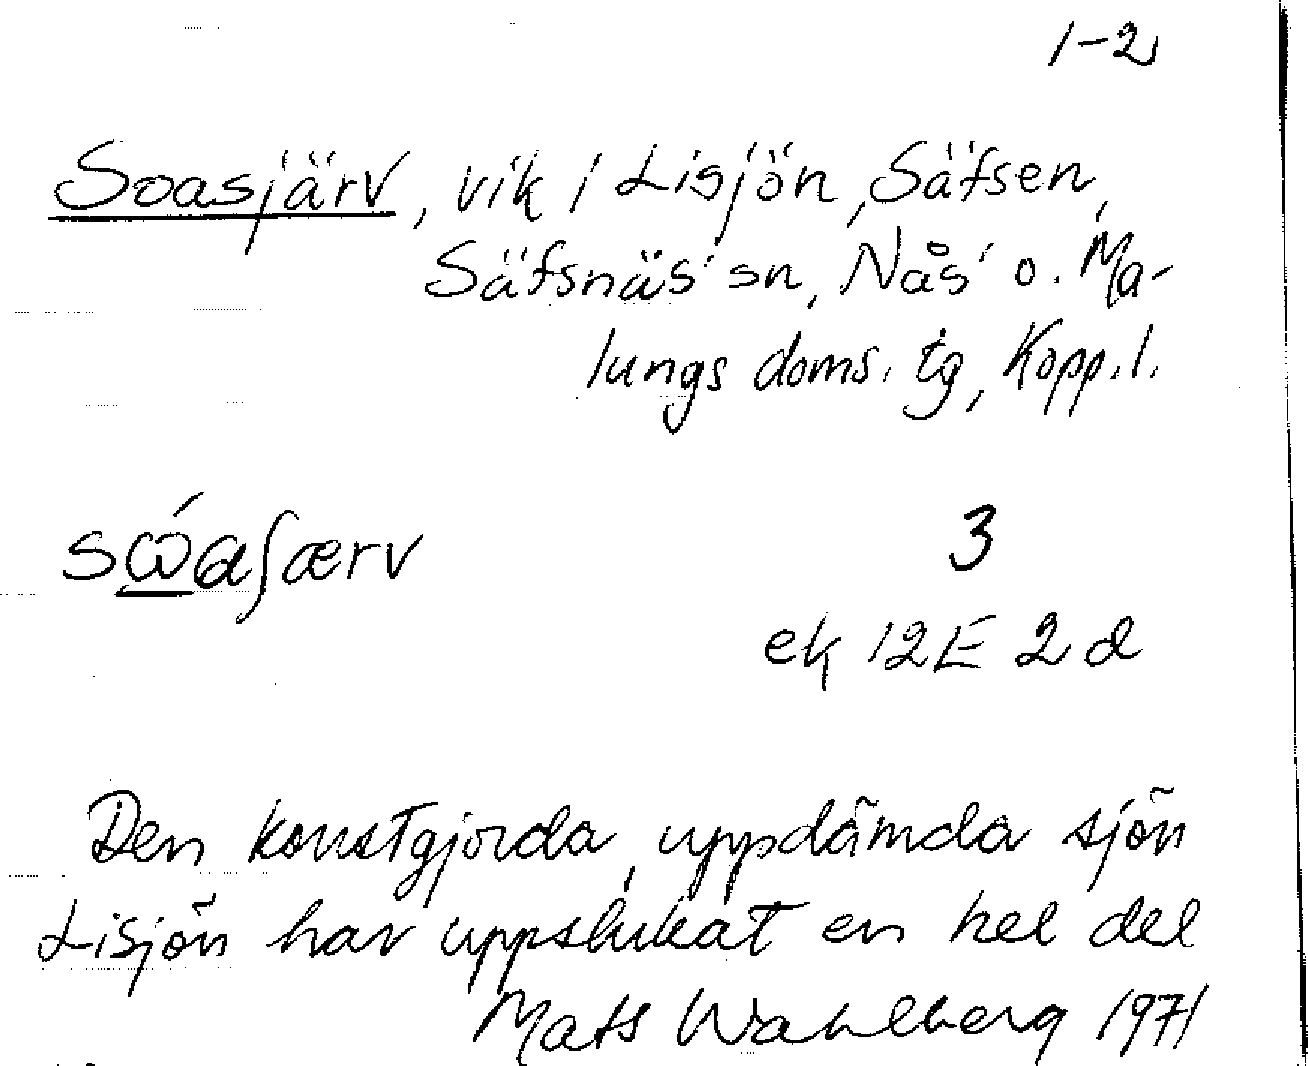 1-2
Soasjärv, vik i Lisjön, Säfsen,
Säfsnäs sn, Nås o. Ma-
lungs doms. tg, Kopp. l.
sώɑʃærv 3
ek 12E 2d
Den konstgjorda, uppdämda sjön
Lisjön har uppslukat en hel del
Mats Wahlberg 1971